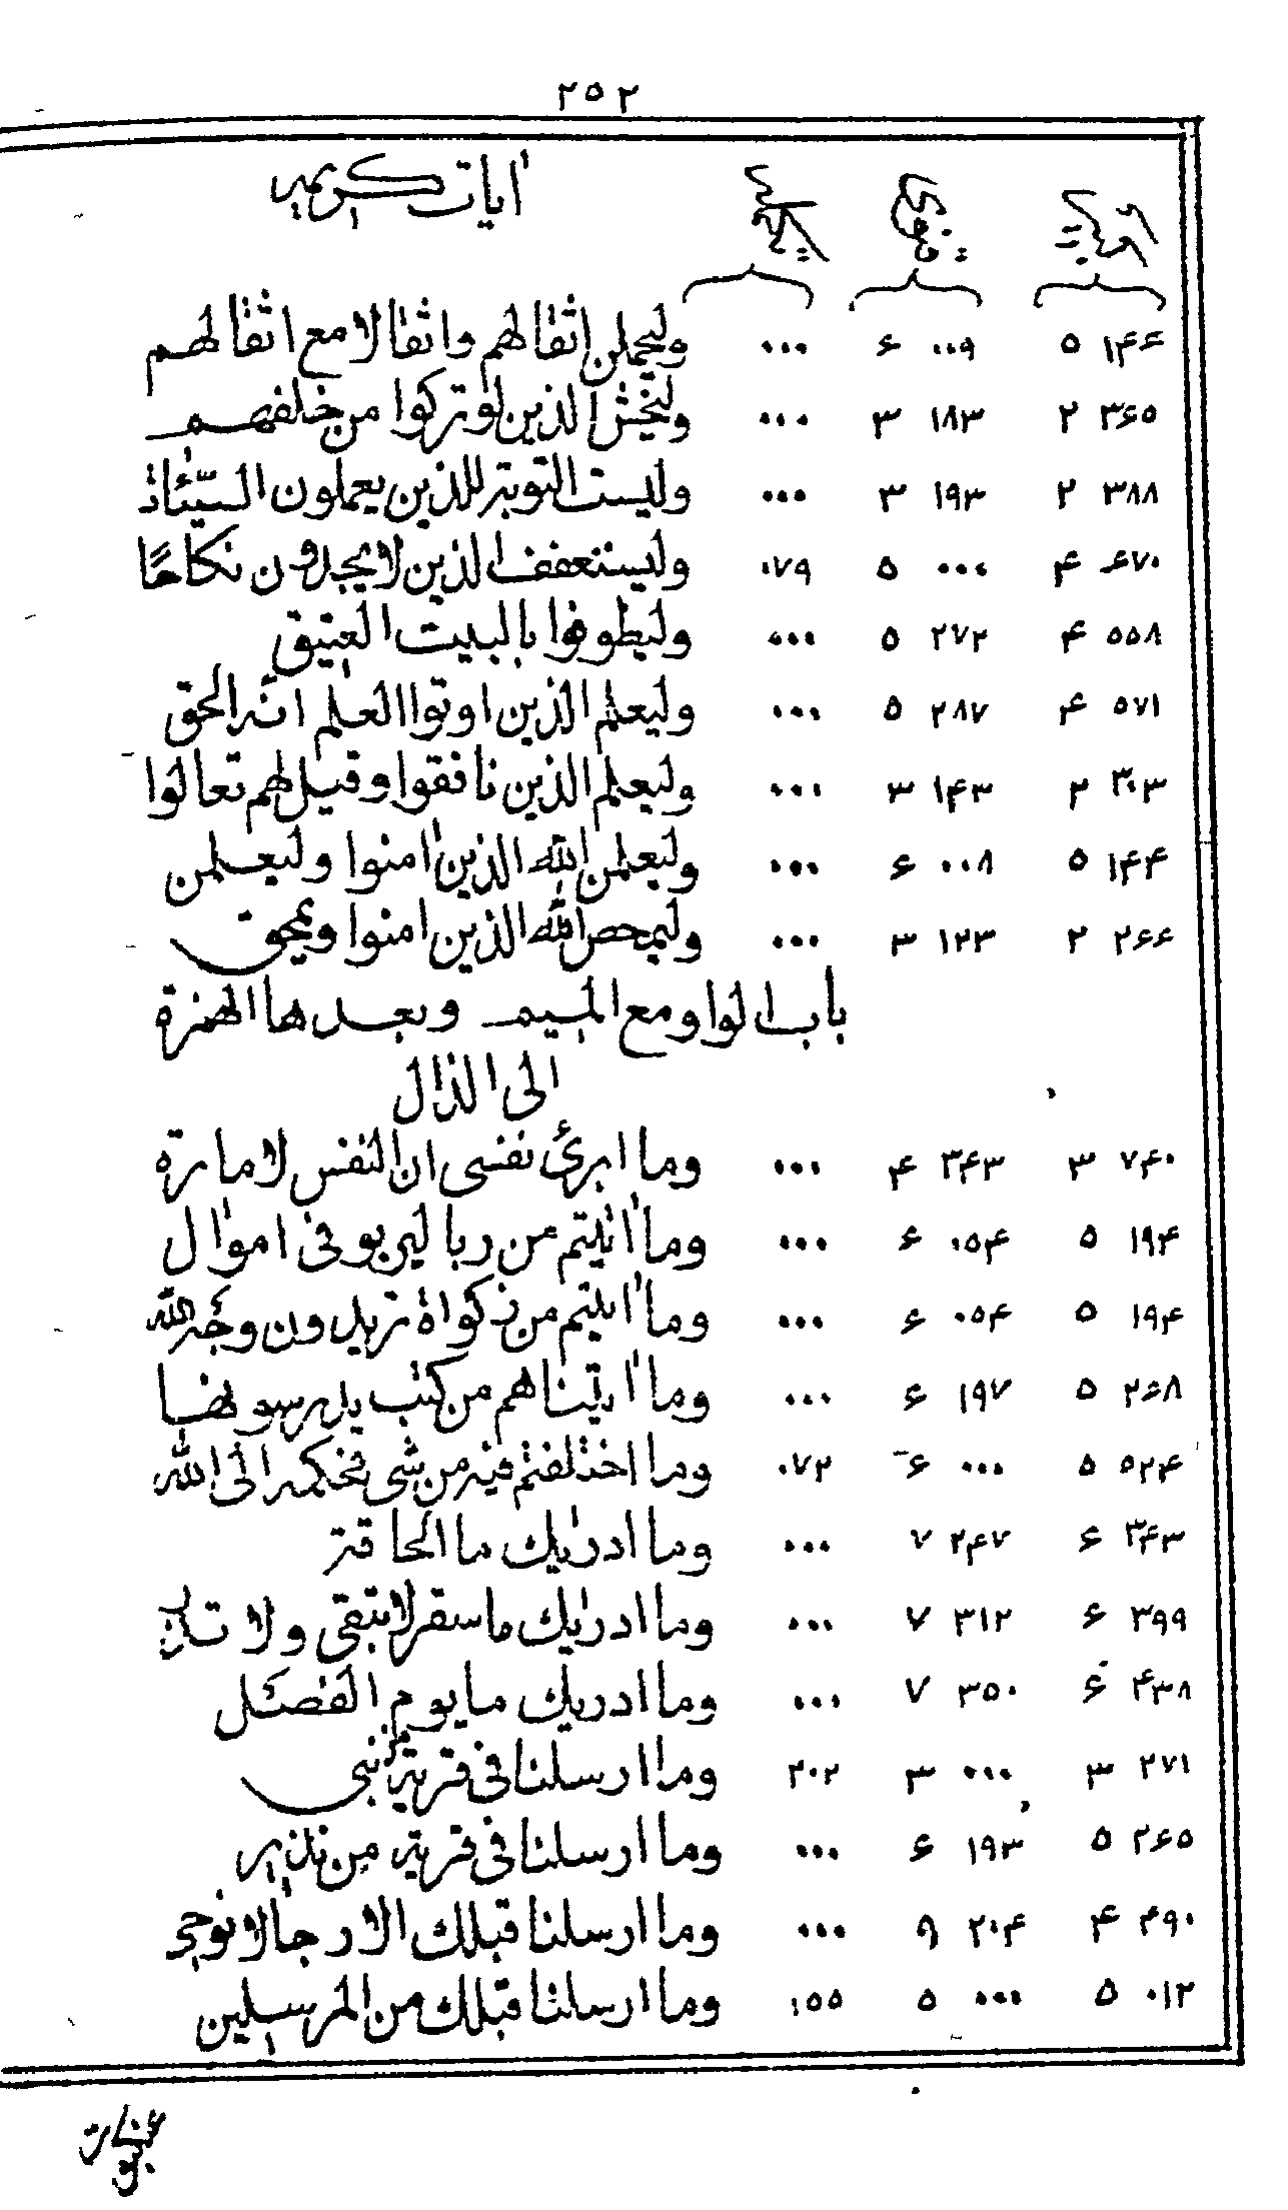 ۲۵۲
اٰیات کریمہ
۱۴۶ ۵ ۰۰۹ ۶ ۰۰۰ ولیحملن اثقالهم واثقالا مع اثقالهم
۳۶۵ ۲ ۱۸۳ ۳ ۰۰۰ ولیخش الذین لو ترکوا من خلفهم
۳۸۸ ۲ ۱۹۳ ۳ ۰۰۰ ولیست التوبة للذین یعملون السیّئات
۶۷۰ ۴ ۰۰۰ ۵ ۰۷۹ ولیستعفف الذین لا یجدون نکاحًا
۵۵۸ ۴ ۲۷۲ ۵ ۰۰۰ ولیطوفوا بالبیت العتیق
۵۷۱ ۴ ۲۸۷ ۵ ۰۰۰ ولیعلم الذین اوتوا العلم انّه الحق
۳۰۳ ۲ ۱۴۳ ۳ ۰۰۰ ولیعلم الذین نافقوا وقیل لهم تعالوا
۱۴۴ ۵ ۰۰۸ ۶ ۰۰۰ ولیعلمن الله الذین اٰمنوا ولیعلمن
۲۶۶ ۲ ۱۲۳ ۳ ۰۰۰ ولیمحص الله الذین اٰمنوا ویمحق
باب الواو مع المیم وبعدها الهمزة
الی الذال
۷۴۰ ۳ ۳۴۳ ۴ ۰۰۰ وما ابرئ نفسی ان النفس لامارة
۱۹۴ ۵ ۰۵۴ ۶ ۰۰۰ وما اٰتیتم من ربا لیربو فی اموال
۱۹۴ ۵ ۰۵۴ ۶ ۰۰۰ وما اٰتیتم من زکواة تریدون وجه الله
۲۶۸ ۵ ۱۹۷ ۶ ۰۰۰ وما اٰتیناهم من کتب یدرسونها
۵۲۴ ۵ ۰۰۰ ۶ ۰۷۲ وما اختلفتم فیه من شی فحکمه الی الله
۳۴۳ ۶ ۲۴۷ ۷ ۰۰۰ وما ادرٰیك ما الحاقة
۳۹۹ ۶ ۳۱۲ ۷ ۰۰۰ وما ادرٰیك ماسقر لا تبقی ولا تذر
۴۳۸ ۶ ۳۵۰ ۷ ۰۰۰ وما ادریك ما یوم الفصل
۲۷۱ ۳ ۰۰۰ ۳ ۲۰۲ وما ارسلنا فی قریة من نبی
۲۶۵ ۵ ۱۹۳ ۶ ۰۰۰ وما ارسلنا فی قریة من نذیر
۴۹۰ ۴ ۲۰۴ ۹ ۰۰۰ وما ارسلنا قبلك الا رجالا نوحی
۰۱۲ ۵ ۰۰۰ ۵ ۱۵۵ وما ارسلنا قبلك من المرسلین